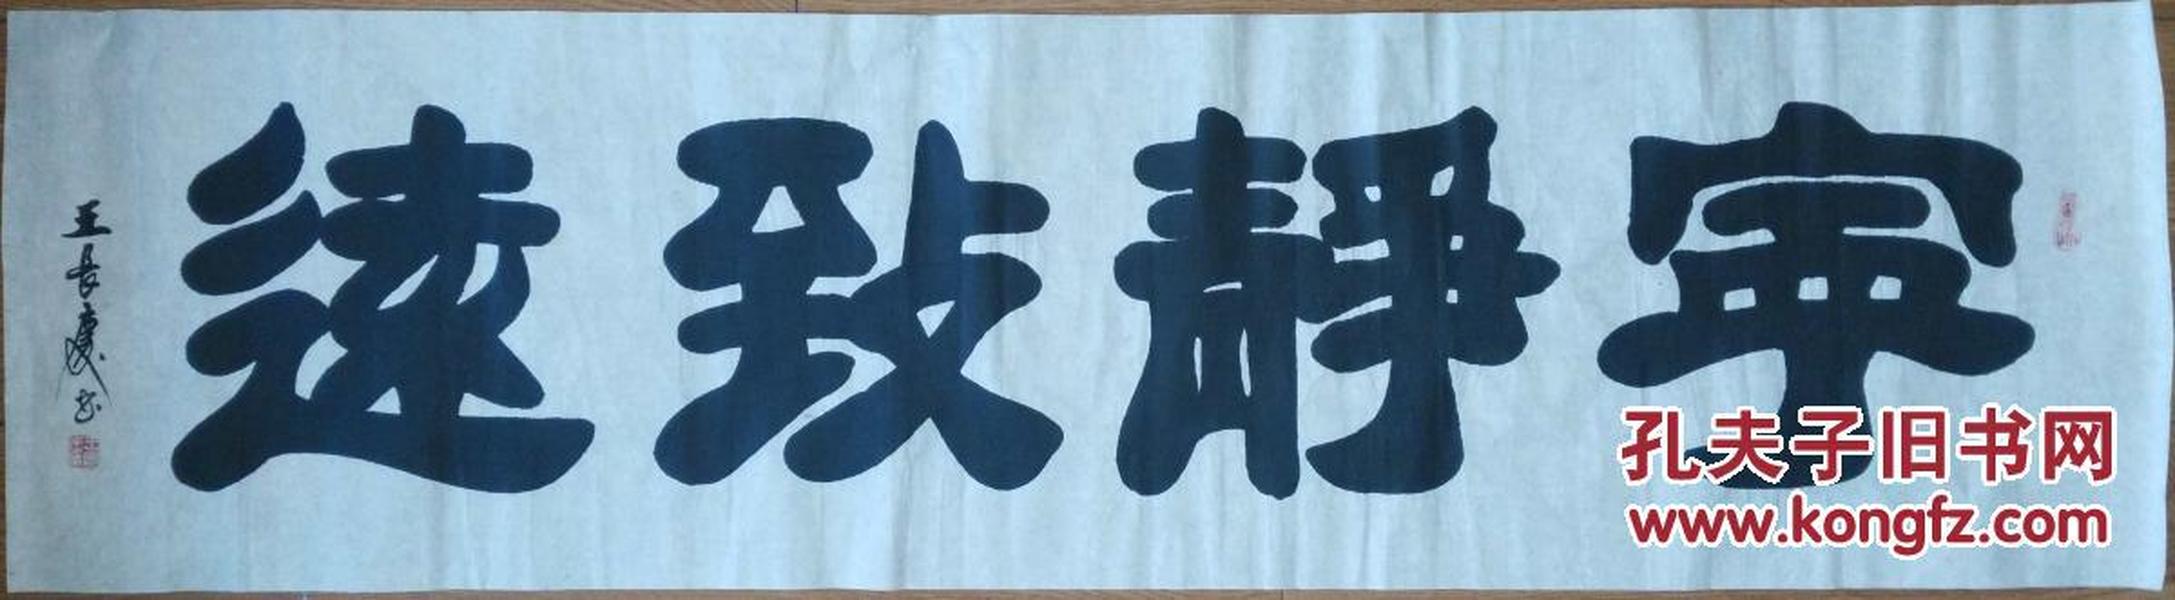 寧靜致遠
王長慶书
孔夫子旧书网
www.kongfz.com